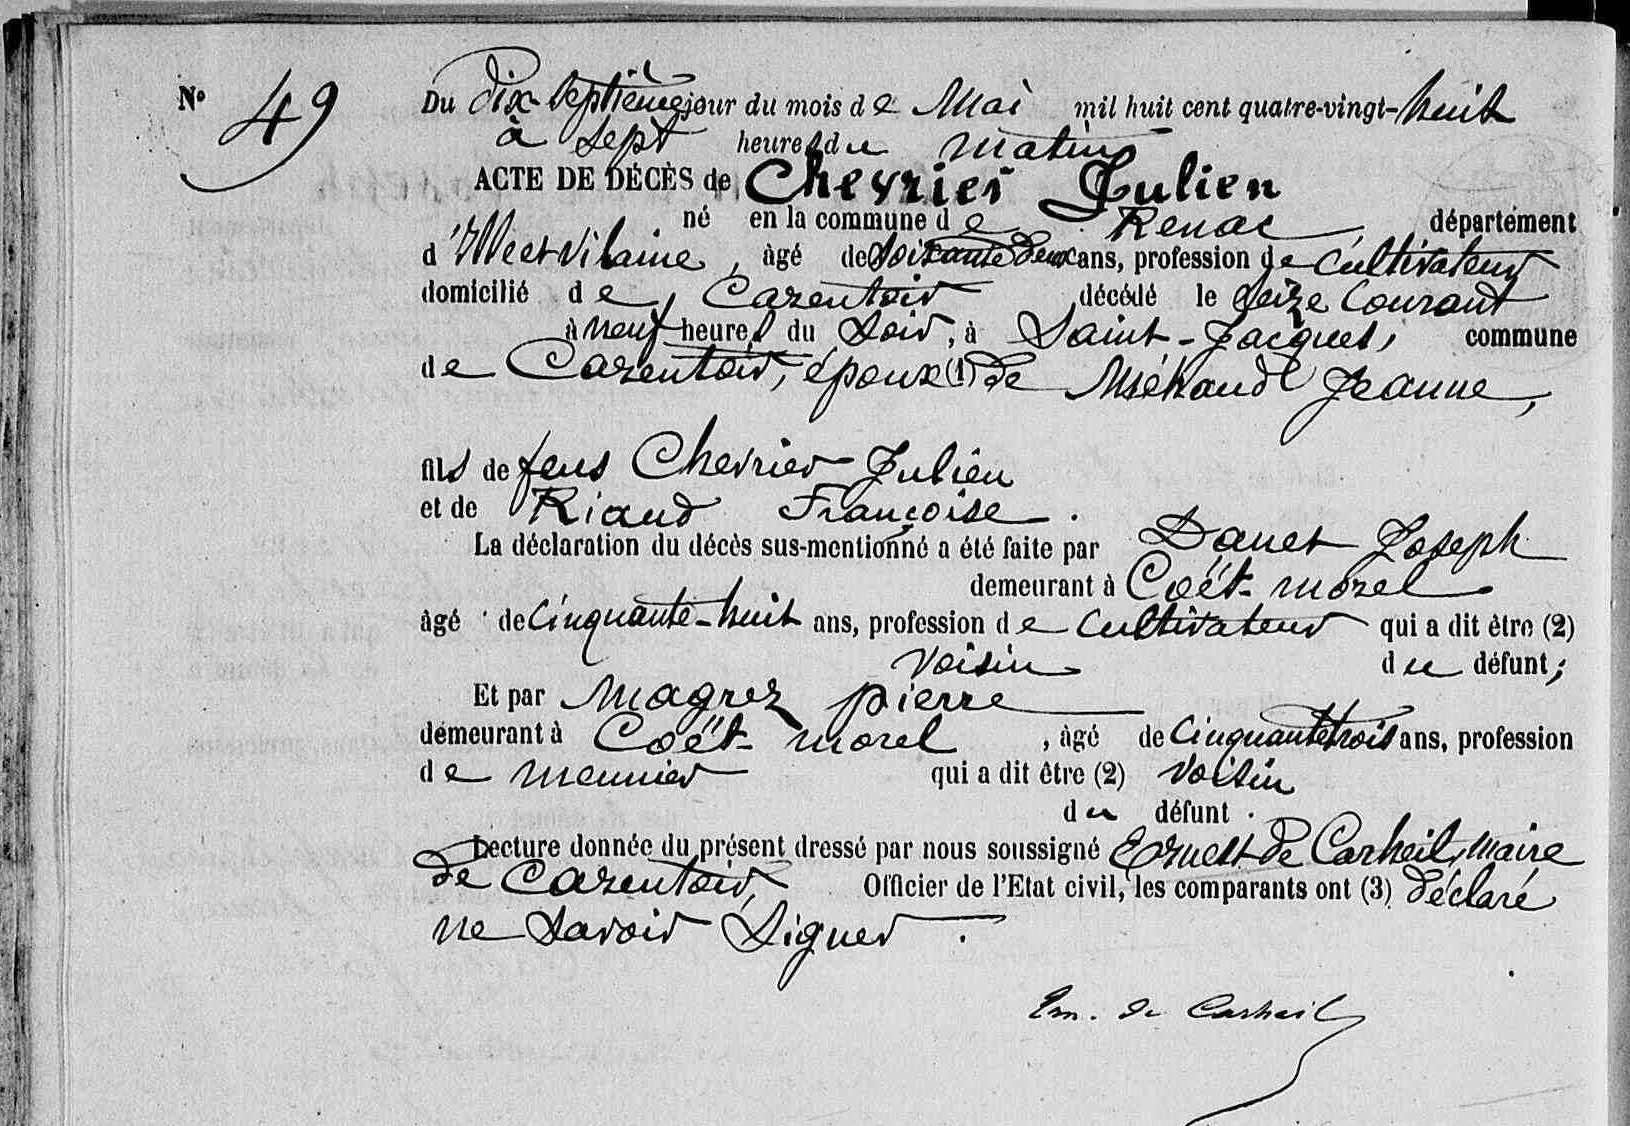 N° 49 Du dix-septième jour du mois de Mai mil huit cent quatre-vingt-huit
à sept heures du matin
ACTE DE DÉCÈS de Chevrier Julien
né en la commune de Renac, département
d'Ille et Vilaine, âgé de soixante deux ans, profession de cultivateur
domicilié de, Carentoir décédé le seize courant
à neuf heures du soir, à Saint-Jacques, commune
de Carentoir, époux (1) de Méhaud Jeanne,
fils de feus Chevrier Julien
et de Riaud Françoise.
La déclaration du décès sus-mentionné a été faite par Danet Joseph
demeurant à Coët-morel
âgé de cinquante-huit ans, profession de cultivateur qui a dit être (2)
voisin du défunt;
Et par Magrez pierre
demeurant à Coët-morel, âgé de cinquante trois ans, profession
de meunier qui a dit être (2) voisin
du défunt.
Lecture donnée du présent dressé par nous soussigné Ernest de Carheil, maire
de Carentoir, Officier de l'Etat civil, les comparants ont (3) déclaré
ne savoir signer.
Ern. de Carheil